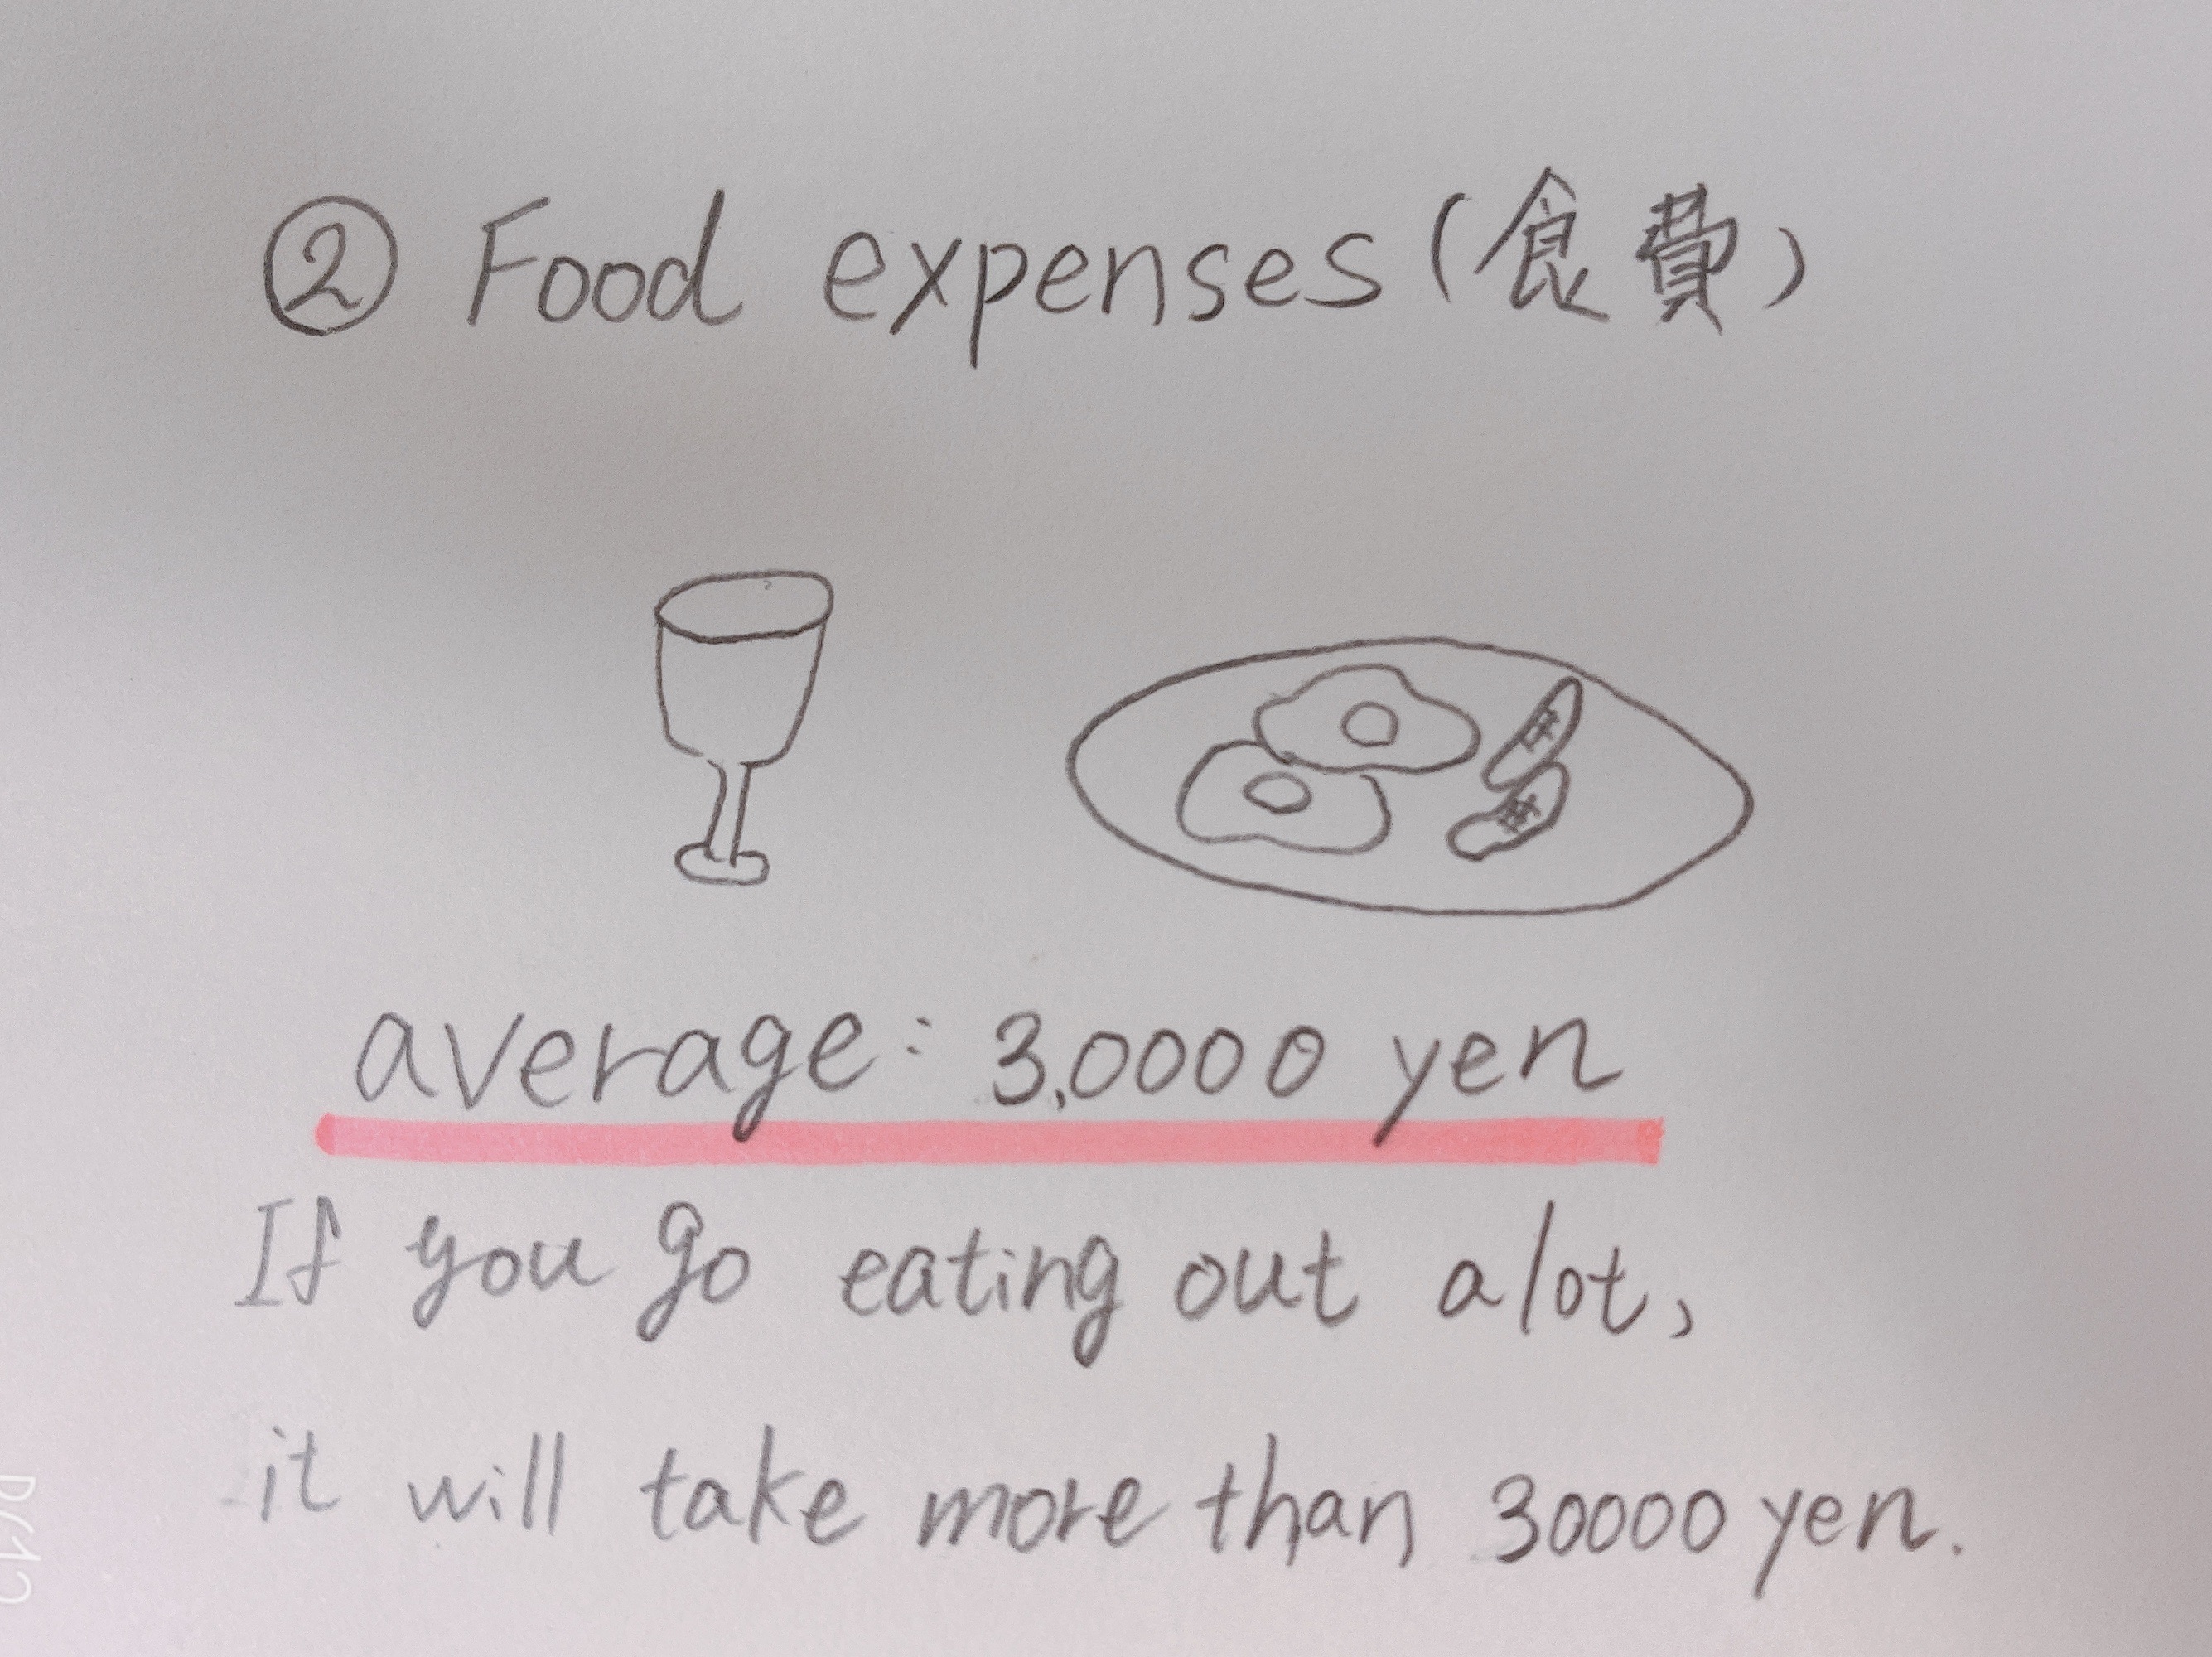 ② Food expenses (食費)
average: 3,0000 yen
If you go eating out alot,
it will take more than 30000 yen.